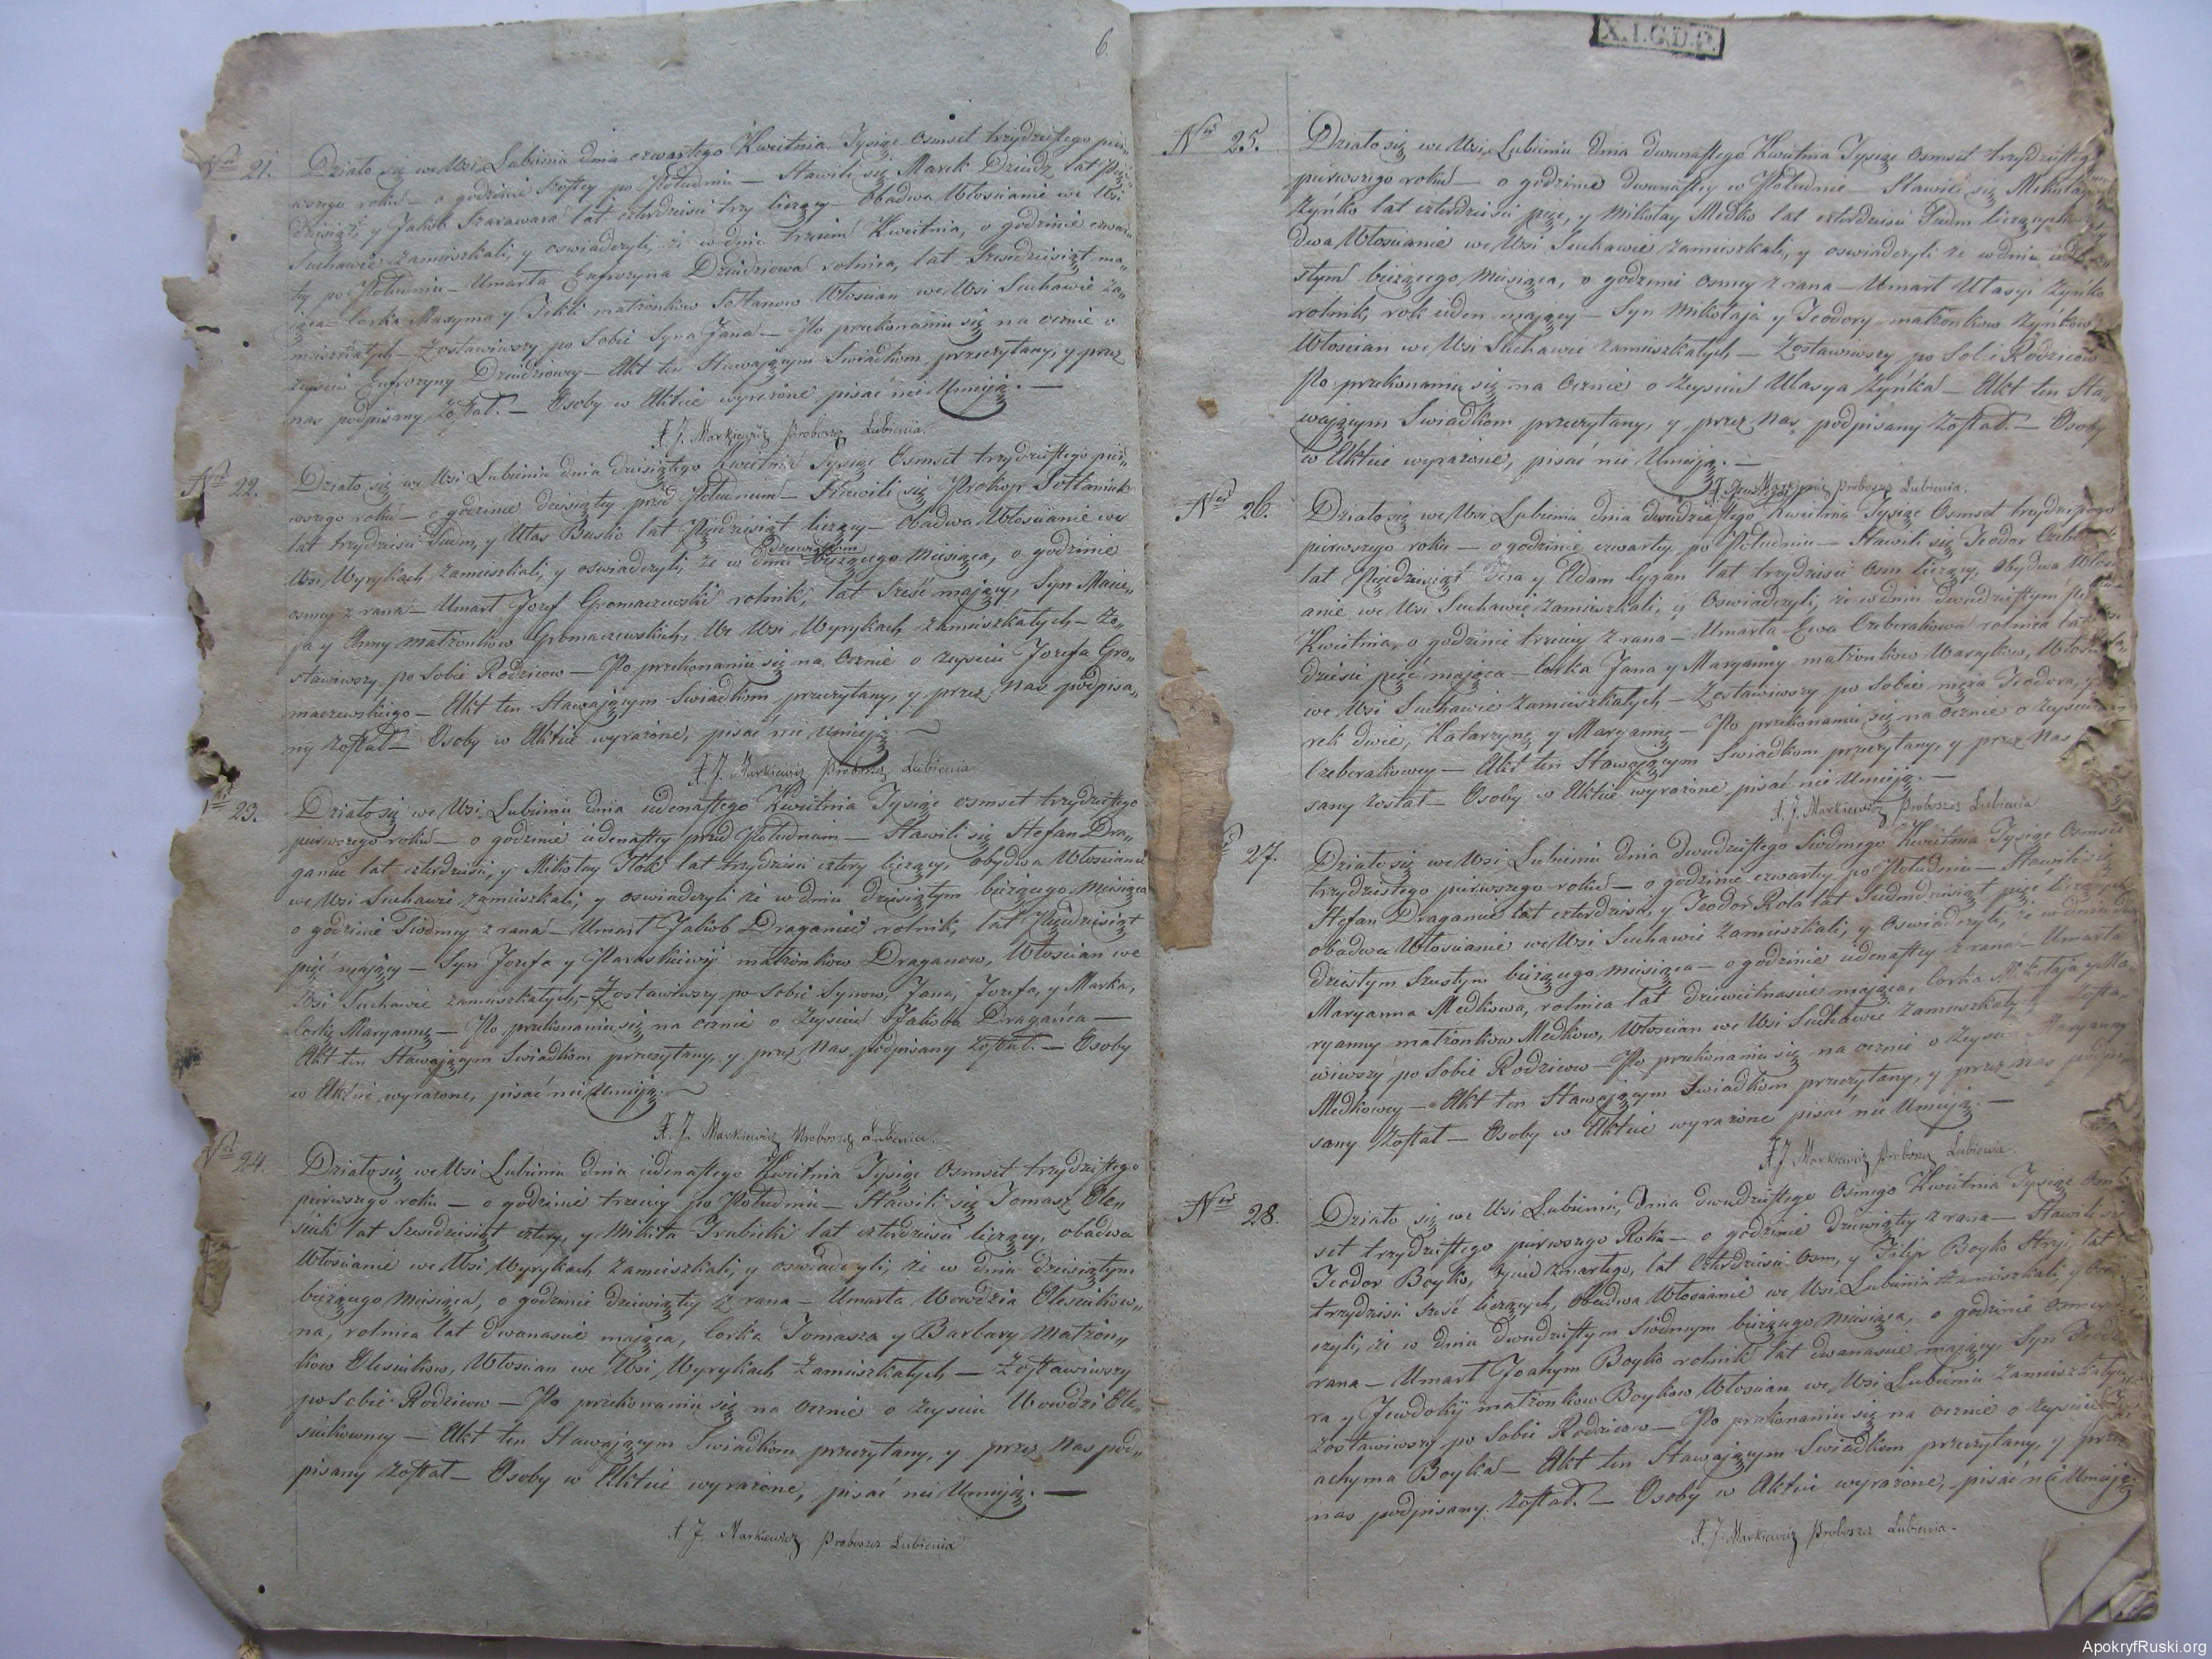 6.
Nro 21.
Działo się we Wsi Lubieniu dnia czwartego Kwietnia Tysiąc osmset trzydziestego pier„
wszego roku — o godzinie szostey po Południu — Stawili się Marek Dziudz lat
y Jakób Szarawara lat czterdzieści trzy liczący — Obadwa Włościanie we Wsi
Suchawie zamieszkali, y oswiadczyli, że w dniu trzecim Kwietnia, o godzinie czwar„
ty po Południu — Umarła Eufrozyna Dziudziowa rolnica, lat Sześćdziesiąt ma„
iąca — Corka Maxyma y Tekli małżonkow Sołtanow Włościan we Wsi Suchawie za„
mieszkałych — Zostawiwszy po Sobie Syna Jana — Po przekonaniu się na ocznie o
zeysciu Eufrozyny Dziudziowey — Akt ten Stawaiącym Swiadkom przeczytany, y przez
nas podpisany został. — Osoby w Akcie wyrażone pisać nie Umieią. —
X. J. Markiewicz Proboszcz Lubienia.
Nro 22.
Działo się we Wsi Lubieniu dnia dziesiątego Kwietnia Tysiąc Osmset trzydziestego pier„
wszego roku — o godzinie dziesiąty przed Południem — Stawili się Prokop Sołtaniuk
lat trzydzieści Siedm, y Ułas Busko lat Pięćdziesiąt liczący — Obadwa Włościanie we
dziewiątym
Wsi Wyrykach zamieszkali, y oswiadczyli, że w dniu bieżącego miesiąca, o godzinie
osmey z rana — Umarł Jozef Gromaczewski rolnik, lat Sześć maiący, Syn Macie„
ja y Anny małżonkow Gromaczewskich, We Wsi Wyrykach zamieszkałych — Zo„
stawiwszy po Sobie Rodzicow — Po przekonaniu się na Ocznie o zeysciu Jozefa Gro„
maczewskiego — Akt ten Stawaiącym Swiadkom przeczytany, y przez nas podpisa„
ny został — Osoby w Akcie wyrażone, pisać nie Umieją. —
X. J. Markiewicz Proboszcz Lubienia
23.
Działo się we Wsi Lubieniu dnia iedenastego Kwietnia Tysiąc osmset trzydziestego
pierwszego roku — o godzinie iedenastey przed Południem — Stawili się Stefan Dra„
ganiec lat czterdzieści, y Mikołay Tłok lat trzydzieści cztery liczący, obydwa Włościanie
we Wsi Suchawie zamieszkali, y oswiadczyli że w dniu dziesiątym bieżącego miesiąca
o godzinie Siodmey z rana — Umarł Jakób Draganiec rolnik, lat Pięćdziesiąt
pięć maiący — Syn Jozefa y Paraskiewij małżonkow Draganow, Włościan we
Wsi Suchawie zamieszkałych, — Zostawiwszy po Sobie Synow, Jana, Jozefa, y Marka,
Corkę Maryannę — Po przekonaniu się na ocznie o Zeysciu Jakóba Dragańca —
Akt ten Stawaiącym Swiadkom przeczytany, y przez nas podpisany został. — Osoby
w Akcie wyrażone, pisać nie Umieją. —
X. J. Markiewicz Proboszcz Lubienia.
Nro 24.
Działo się we Wsi Lubieniu dnia iedenastego Kwietnia Tysiąc Osmset trzydziestego
pierwszego roku — o godzinie trzeciey po Południu — Stawili się Tomasz Ole„
siuk lat Sześćdziesiąt cztery, y Mikita Trubicki lat czterdzieści liczący, obadwa
Włościanie we Wsi Wyrykach Zamieszkali, y oswiadczyli, że w dniu dziesiątym
bieżącego miesiąca, o godzinie dziewiąty z rana — Umarła Wowdzia Olesiukow„
na, rolnica lat dwanascie maiąca, Corka Tomasza y Barbary Małżon„
kow Olesiukow, Włościan we Wsi Wyrykach Zamieszkałych — Zostawiwszy
po Sobie Rodzicow — Po przekonaniu się na ocznie o zeysciu Wowdzi Ole„
siukowney — Akt ten Stawaiącym Swiadkom przeczytany, y przez nas pod„
pisany został — Osoby w Akcie wyrażone, pisać nie Umieją. —
X. J. Markiewicz Proboszcz Lubienia
X.I.G.D.P.
Nro 25.
Działo się we Wsi Lubieniu dnia dwunastego Kwietnia Tysiąc Osmset trzydziestego
pierwszego roku — o godzinie dwunastey w Południe — Stawili się Mikołay
Zyńko lat czterdzieści pięć, y Mikołay Medko lat czterdzieści Siedm liczących
dwa Włościanie we Wsi Suchawie zamieszkali, y oswiadczyli że w dniu
stym bieżącego Miesiąca, o godzinie osmey z rana — Umarł Ułasyi Zyńko
rolnik, rok ieden maiący — Syn Mikołaja y Teodory małżonkow Zyńkow
Włościan we Wsi Suchawie Zamieszkałych — Zostawiwszy po Sobie Rodzicow
Po przekonaniu się na Ocznie o Zeysciu Ułasya Zyńka — Akt ten Sta„
waiącym Swiadkom przeczytany, y przez nas podpisany został. — Osoby
w Akcie wyrażone, pisać nie Umieją. —
Markiewicz Proboszcz Lubienia.
Nro 26.
Działo się we Wsi Lubieniu dnia dwudziestego Kwietnia Tysiąc Osmset trzydziestego
pierwszego roku — o godzinie czwarty po Południu — Stawili się Teodor
lat Pięćdziesiąt dwa y Adam Cygan lat trzydzieści osm liczący, obydwa Włości„
anie we Wsi Suchawie zamieszkali, y Oswiadczyli, że w dniu dwudziestym
Kwietnia, o godzinie trzeciey z rana — Umarła Ewa Czeberakowa rolnica lat
dzieści pięć maiąca — Corka Jana y Maryanny małżonkow Warykow, Włościan
we Wsi Suchawie Zamieszkałych — Zostawiwszy po Sobie męża Teodora, y
rek dwie, Katarzynę y Maryannę — Po przekonaniu się na ocznie o Zeysciu
Czeberakowey — Akt ten Stawaiącym Swiadkom przeczytany, y przez nas
sany został — Osoby w Akcie wyrażone pisać nie Umieją. —
X. J. Markiewicz Proboszcz Lubienia
27.
Działo się we Wsi Lubieniu dnia dwudziestego Siodmego Kwietnia Tysiąc Osmset
trzydziestego pierwszego roku — o godzinie czwarty po Południu — Stawili się
Stefan Draganiec lat czterdzieści, y Teodor Rola lat Siedmdziesiąt pięć liczących
obadwa Włościanie we Wsi Suchawie Zamieszkali, y Oswiadczyli, że w dniu dwu
dziestym Szustym bieżącego miesiąca — o godzinie iedenastey z rana — Umarła
Maryanna Medkowa, rolnica lat dziewietnascie maiąca, Corka Mikołaja y Ma„
ryanny małżonkow Medkow, Włościan we Wsi Suchawie Zamieszkałych Zosta„
wiwszy po Sobie Rodzicow — Po przekonaniu się na ocznie o Zeysciu Maryanny
Medkowey — Akt ten Stawaiącym Swiadkom przeczytany, y przez nas podpi„
sany został — Osoby w Akcie wyrażone pisać nie Umieją. —
X. J. Markiewicz Proboszcz Lubienia.
Nro 28.
Działo się we Wsi Lubieniu, dnia dwudziestego Osmego Kwietnia Tysiąc Osm„
set trzydziestego pierwszego Roku — o godzinie dziewiąty z rana — Stawili się
Teodor Boyko, Oyciec zmarłego, lat Czterdzieści Osm, y Filip Boyko Stryj lat
trzydzieści sześć liczących, Obadwa Włościanie we Wsi Lubieniu zamieszkali, y
czyli, że w dniu dwudziestym Siodmym bieżącego Miesiąca, o godzinie osmey z
rana — Umarł Joahym Boyko rolnik lat dwanascie maiący, Syn Teodo
ra y Jewdokij małżonkow Boykow Włościan we Wsi Lubieniu Zamieszkałych
zostawiwszy po Sobie Rodzicow — Po przekonaniu się na Ocznie o Zeysciu
achyma Boyka — Akt ten Stawaiącym Swiadkom przeczytany, y przez
nas podpisany został. — Osoby w Akcie wyrażone, pisać nie Umieją.
X. J. Markiewicz Proboszcz Lubienia.
ApokryfRuski.org